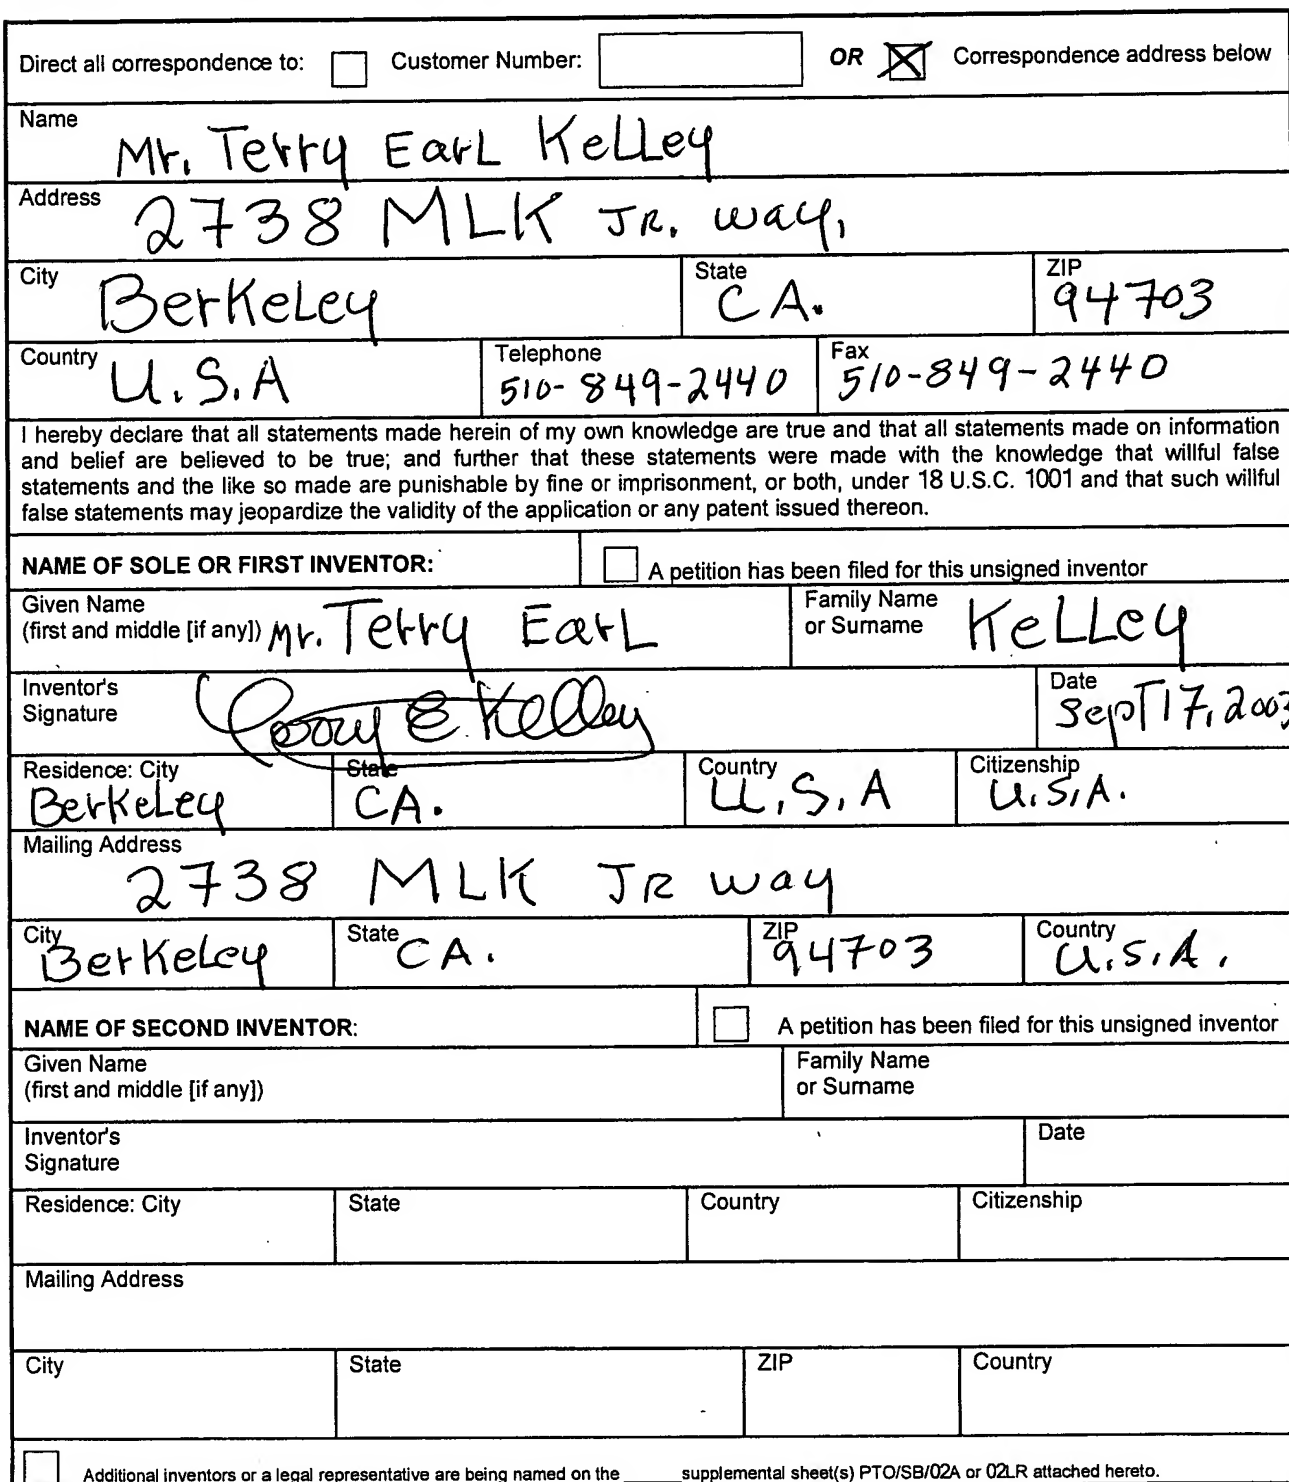 Direct all correspondence to: Customer Number: OR Correspondence address below
Name
Mr. Terry Earl Kelley
Address
2738 MLK JR. way,
City State ZIP
Berkeley CA. 94703
Country Telephone Fax
U.S.A 510-849-2440 510-849-2440
I hereby declare that all statements made herein of my own knowledge are true and that all statements made on information
and belief are believed to be true; and further that these statements were made with the knowledge that willful false
statements and the like so made are punishable by fine or imprisonment, or both, under 18 U.S.C. 1001 and that such willful
false statements may jeopardize the validity of the application or any patent issued thereon.
NAME OF SOLE OR FIRST INVENTOR: A petition has been filed for this unsigned inventor
Given Name Family Name
(first and middle [if any]) Mr. Terry Earl or Surname Kelley
Inventor's Date
Signature Terry E. Kelley Sept 17, 2003
Residence: City State Country Citizenship
Berkeley CA. U.S.A U.S.A.
Mailing Address
2738 MLK JR way
City State ZIP Country
Berkeley CA. 94703 U.S.A.
NAME OF SECOND INVENTOR: A petition has been filed for this unsigned inventor
Given Name Family Name
(first and middle [if any]) or Surname
Inventor's Date
Signature
Residence: City State Country Citizenship
Mailing Address
City State ZIP Country
Additional inventors or a legal representative are being named on the ______supplemental sheet(s) PTO/SB/02A or 02LR attached hereto.